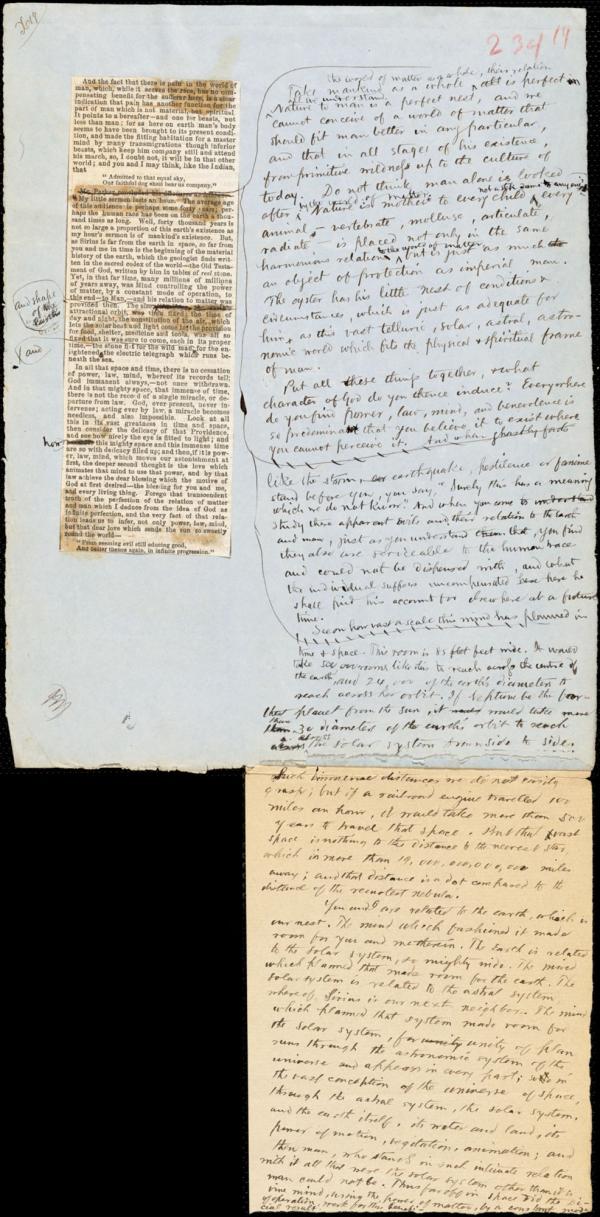 234
19
And the fact that there is pain in the world of
man, which, while it serves the race, has no com-
pensating benefit for the sufferer here, is a clear
indication that pain has another function for the
part of man which is not material, but spiritual.
It points to a hereafter—and one for beasts, not
less than man; for as here on earth man's body
seems to have been brought to its present condi-
tion, and made the fitting habitation for a master
mind by many transmigrations though inferior
beasts, which keep him company still and attend
his march, so, I doubt not, it will be in that other
world; and you and I may think, like the Indian,
that
"Admitted to that equal sky,
Our faithful dog shall bear us company."
Mr. Parker
My little sermon lasts an hour. The average age
of this audience is perhaps some forty years; per-
haps the human race has been on the earth a thou-
sand times as long. Well, forty thousand years is
not so large a proportion of this earth's existence as
my hour's sermon is of mankind's existence. But,
as Sirius is far from the earth in space, so far from
you and me in time is the beginning of the material
history of the earth, which the geologist finds writ-
ten in the sacred codex of the world—the Old Testa-
ment of God, written by him in tables of stone.
Yet, in that far time, many millions of millions
of years away, was Mind controlling the power
of matter, by a constant mode of operation, to
this end—to Man,—and his relation to matter was
provided then. The
attractional orbit, was then fixed; the time of
day and night, the constitution of the air, which
lets the solar heat and light come in; the provision
for food, shelter, medicine and tools, was all so
fixed that it was sure to come, each in its proper
time,—the stone for the wild man, for the en-
lightened, the electric telegraph which runs be-
neath the sea.
In all that space and time, there is no cessation
of power, law, mind, whereof its records tell;
God immanent always,—not once withdrawn.
And in that mighty space, that immense of time,
there is not the record of a single miracle, or de-
parture from law. God, ever present, never in-
tervenes; acting ever by law, a miracle becomes
needless, and also impossible. Look at all
this in its vast greatness in time and space,
then consider the delicacy of that Providence,
and see how nicely the eye is fitted to light; and
this mighty space and this immense time
are so with delicacy filled up; and then, if it is pow-
er, law, mind, which moves our astonishment at
first, the deeper second thought is the love which
animates that mind to use that power, and by that
law achieve the dear blessing which the motive of
God at first desired—the blessing for you and me,
and every living thing. Forego that transcendent
truth of the perfection of the relation of matter
and man which I deduce from the idea of God as
infinite perfection, and the very fact of that rela-
tion leads us to infer, not only power, law, mind,
but that dear love which sends the sun to sweetly
round the world—
"From seeming evil still educing good,
And better thence again, in infinite progression."
and shape
of the
Earth
and
how
the world of matter as a whole, this relation
Take mankind as a whole & all is perfect
all we understand
Nature to man is a perfect nest, and we
cannot conceive of a world of matter that
should fit man better in any particular,
and that in all stages of his existence,
from primitive wildness up to the culture of
today. Do not think man alone is looked
after. Nature is mother to every child; every
animal, vertebrate, mollusc, articulate,
radiate — is placed not only in the same
harmonious relation
the world of matter
but is just as much
an object of protection as imperial man.
The oyster has his little nest of conditions &
circumstances, which is just as adequate for
him, as this vast telluric, solar, astral, astro-
nomic world which fits the physical & spiritual frame
of man.
Put all these things together, & what
character of God do you thence induce? Everywhere
do you find power, law, mind, and benevolence is
so predominant that you believe it to exist where
you cannot perceive it. And when ghastly facts
like the storm, earthquake, pestilence or famine
stand before you, you say, "Surely this has a meaning
which we do not know." And when you come to
study these apparent evils and their relation to the earth
and man, just as you understand that, you find
they also are serviceable to the human race
and could not be dispensed with, and what
the individual suffers uncompensated here he
shall find his account for elsewhere at a future
time.
See on how vast a scale this mind has planned in
time & space. This room is 85 feet wide. It would
take rooms like this to reach across the centre of
the earth, and 24,000 of the earth's diameters to
reach across her orbit. If Neptune be the
planet from the sun, it would take more
than 30 diameters of the earth's orbit to reach
across the solar system from side to side.
Such immense distances we do not easily
grasp; but if a railroad engine travelled 100
miles an hour, it would take more than
years to travel that space. But that vast
space is nothing to the distance to the nearest star,
which is more than 19,000,000,000,000 miles
away; and that distance is a dot compared to the
distance of the remotest nebula.
You and I are related to the earth, which is
our nest. The mind which fashioned it made
room for you and me therein. The Earth is related
to the solar system, so mighty wide. The mind
which planned that made room for the earth. The
solar system is related to the astral system
whereof Sirius is our next neighbor. The mind
which planned that system made room for
the solar system, for unity unity of plan
runs through the astronomic system of the
universe and appears in every part; seen in
the vast conception of the universe of space,
through the astral system, the solar system,
and the earth itself, its water and land, its
power of motion, vegetation, animation; and
then man, who stands in such intimate relation
with it all that were the solar system other than it is
man could not be. Thus far off in space did the Di-
vine mind, using the power of matter, by a constant mode
of operation, work for this benefi-
cial result.